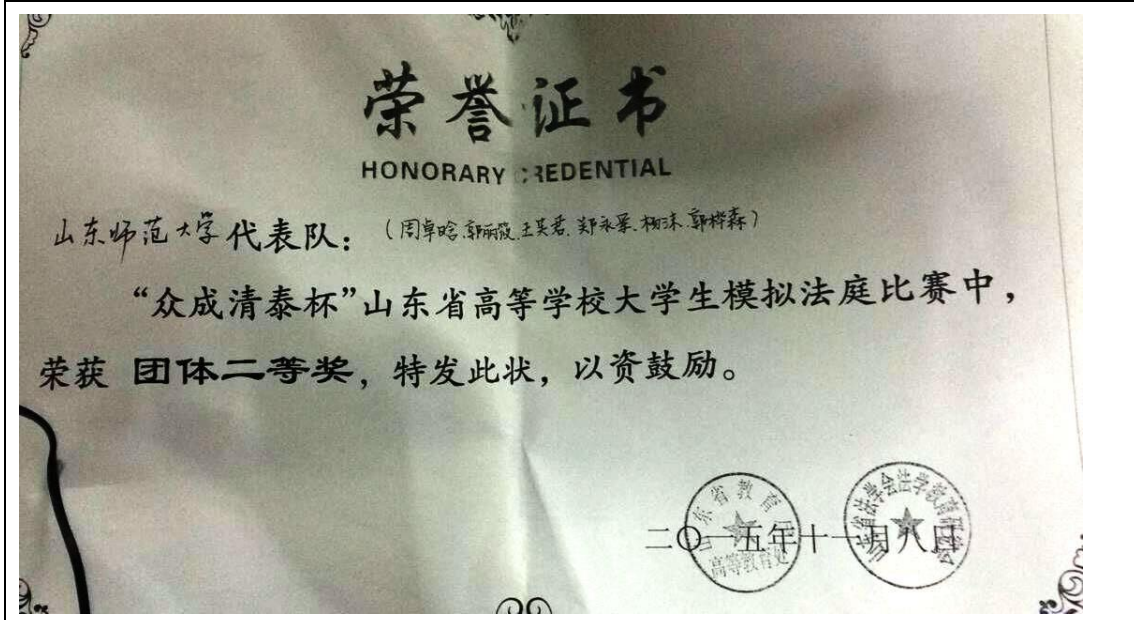 荣誉证书
HONORARY CREDENTIAL
山东师范大学代表队：（周卓晗.郭丽筱.王昊君.郑永军.杨沫.郭桦森）
“众成清泰杯”山东省高等学校大学生模拟法庭比赛中，
荣获 团体二等奖，特发此状，以资鼓励。
山东省教育厅
高等教育处
山东省法学会法学教育研究会
二〇一五年十一月八日